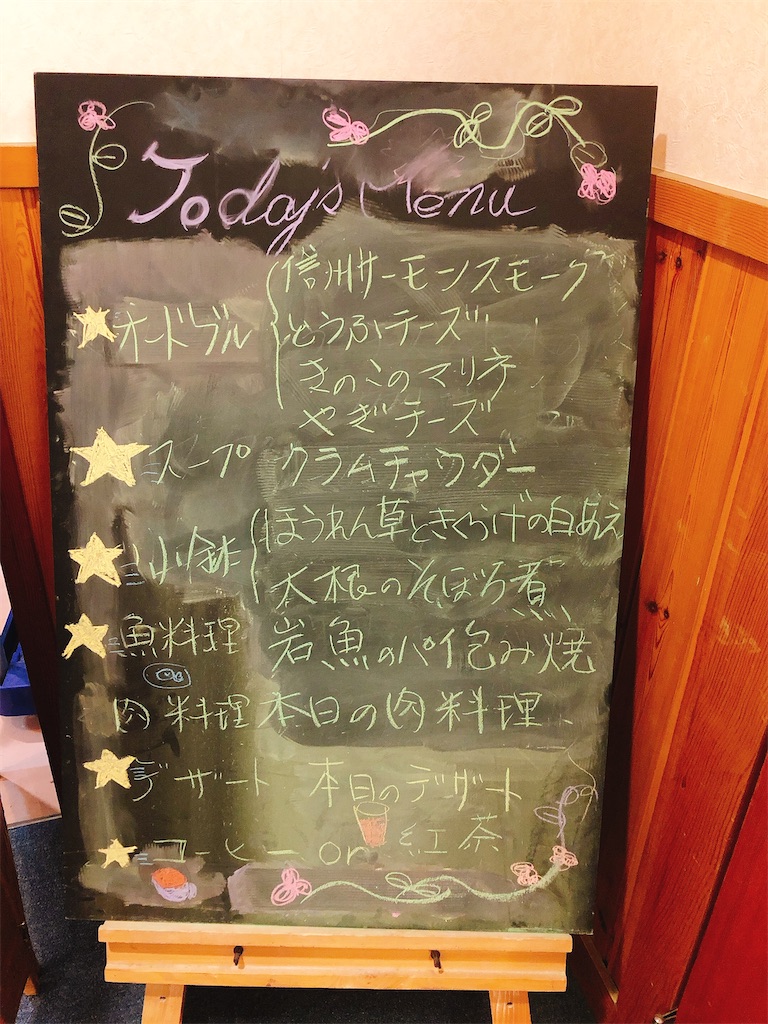 Today's Menu
オードブル 信州サーモンスモーク
とうふチーズ
きのこのマリネ
やぎチーズ
スープ クラムチャウダー
小鉢 ほうれん草ときくらげの白あえ
大根のそぼろ煮
魚料理 岩魚のパイ包み焼
肉料理 本日の肉料理
デザート 本日のデザート
コーヒー or 紅茶